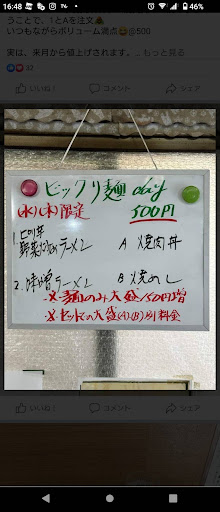 16:48
79%
うことで、1とAを注文
いつもながらボリューム満点 @500
実は、来月から値上げされます。… もっと見る
32
いいね！
コメント
シェア
ビックリ麺 day
(水)(木)限定 500円
1. ピリ辛
野菜 ラーメン A 焼肉丼
2. 味噌ラーメン B 焼めし
※麺のみ大盛150円増
※セットでの大盛(A)(B)別料金
いいね！
コメント
シェア